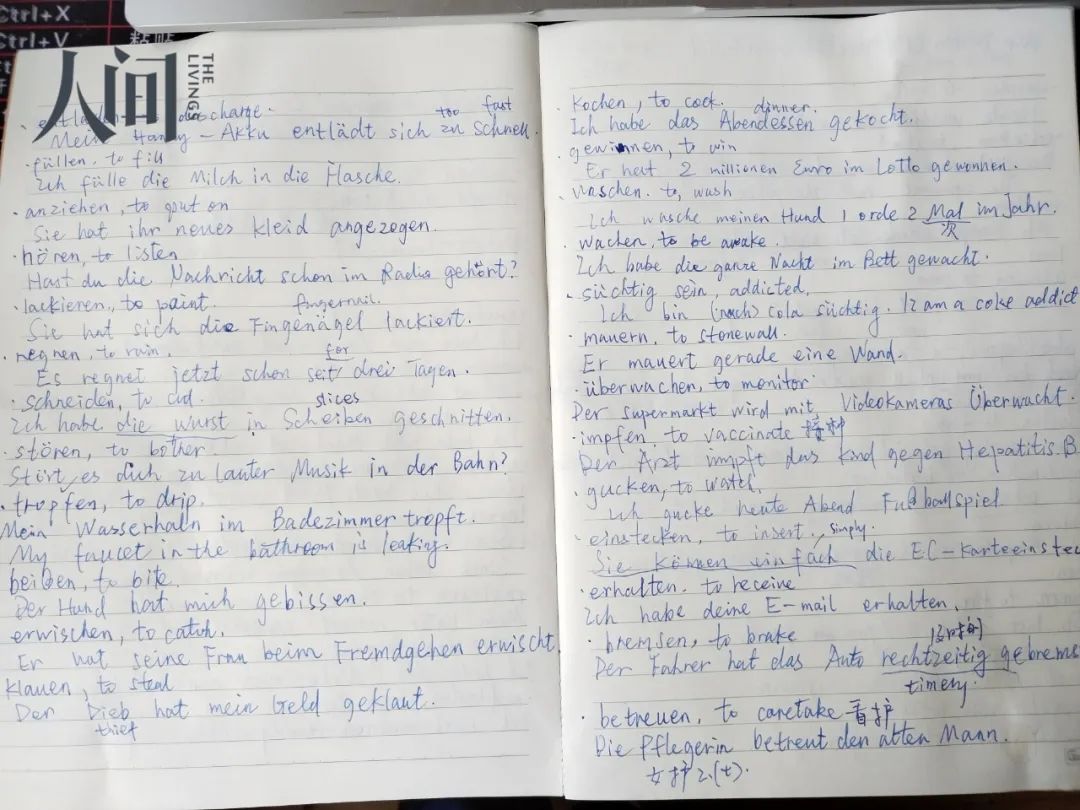 Ctrl+X
Ctrl+V
粘贴
人间
THE LIVINGS
discharge.
too fast
Mein Handy - Akku entlädt sich zu schnell.
·füllen, to fill
Ich fülle die Milch in die Flasche.
·anziehen, to put on
Sie hat ihr neues Kleid angezogen.
·hören, to listen
Hast du die Nachricht schon im Radio gehört?
·lackieren, to paint.
fingernail.
Sie hat sich die Fingenägel lackiert.
·regnen, to rain.
for
Es regnet jetzt schon seit drei Tagen.
·schneiden, to cut.
slices
Ich habe die wurst in Scheiben geschnitten.
·stören, to bother.
Stört es dich zu lauter Musik in der Bahn?
·tropfen, to drip.
Mein Wasserhahn im Badezimmer tropft.
My faucet in the bathroom is leaking.
beißen, to bite.
Der Hund hat mich gebissen.
erwischen, to catch.
Er hat seine Frau beim Fremdgehen erwischt
klauen, to steal
Der Dieb hat mein Geld geklaut.
thief
·Kochen, to cock.
dinner.
Ich habe das Abendessen gekocht.
·gewinnen, to win
Er hat 2 millionen Euro im Lotto gewonnen.
waschen. to, wash
Ich wasche meinen Hund 1 orde 2 Mal im Jahr.
次
·wachen, to be awake.
Ich habe die ganze Nacht im Bett gewacht.
·süchtig sein, addicted.
Ich bin (nach) cola süchtig. I am a coke addict
·mauern, to stonewall.
Er mauert gerade eine Wand.
·überwachen, to monitor
Der supermarkt wird mit Videokameras Überwacht.
·impfen, to vaccinate 接种
Der Arzt impft das Kind gegen Hepatitis.B
·gucken, to watch.
Ich gucke heute Abend Fußballspiel
·einstecken, to insert.
simply.
Sie können einfach die EC-Karte einstec
·erhalten. to receive
Ich habe deine E-mail erhalten.
·bremsen, to brake
及时的
Der Fahrer hat das Auto rechtzeitig gebrems
timely.
·betreuen, to caretake 看护
Die Pflegerin betreut den alten Mann.
女护工(士).